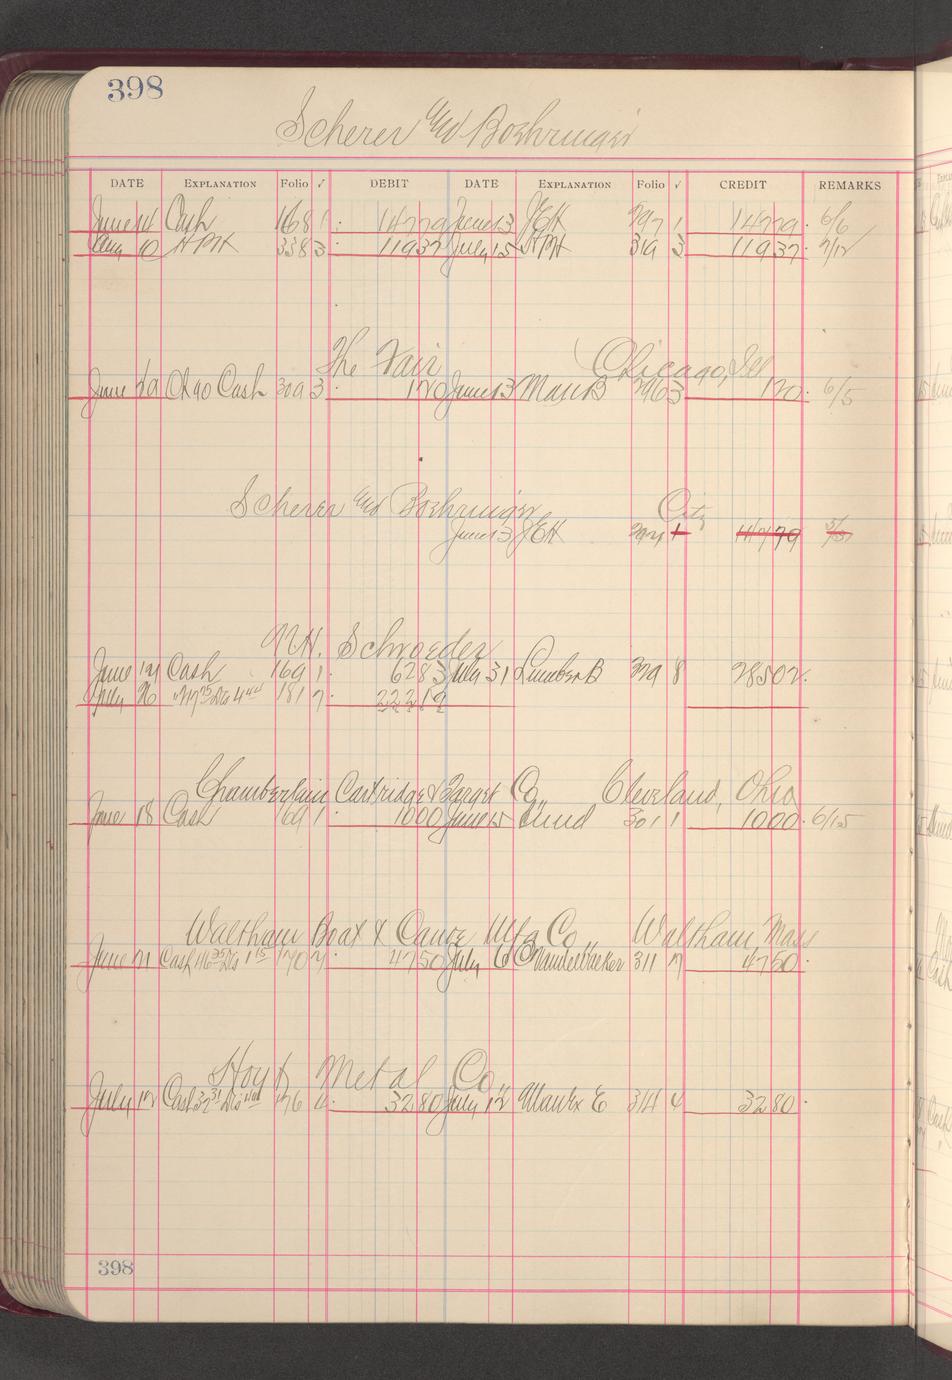 398
Scherer and Boehringer
DATE EXPLANATION Folio ✓ DEBIT DATE EXPLANATION Folio ✓ CREDIT REMARKS
June 14 Cash 168 1 147 79 June 13 JEH 297 1 147 79 6/6
Aug 10 338 3 119 37 July 15 319 3 119 37 7/12
The Fair Chicago, Ill
June 29 Chgo Cash 309 3 1 20 June 13 296 3 1 20 6/5
Scherer and Boehringer City
June 13 JEH 297 1 147 79
Schroeder
June 14 Cash 169 1 62 83 31 Lumber B 329 8 285 02
July 26 181 7 222 19
Chamberlain Cartridge & Target Co Cleveland, Ohio
June 18 Cash 169 1 10 00 June 15 301 1 10 00 6/15
Waltham Boat & Canoe Mfg Co Waltham Mass
June 21 Cash 46 35 Dis 1 15 170 7 47 50 July 6 311 7 47 50
Hoyt Metal Co
July 12 Cash 32 31 Dis 176 4 32 80 July 12 314 4 32 80
398